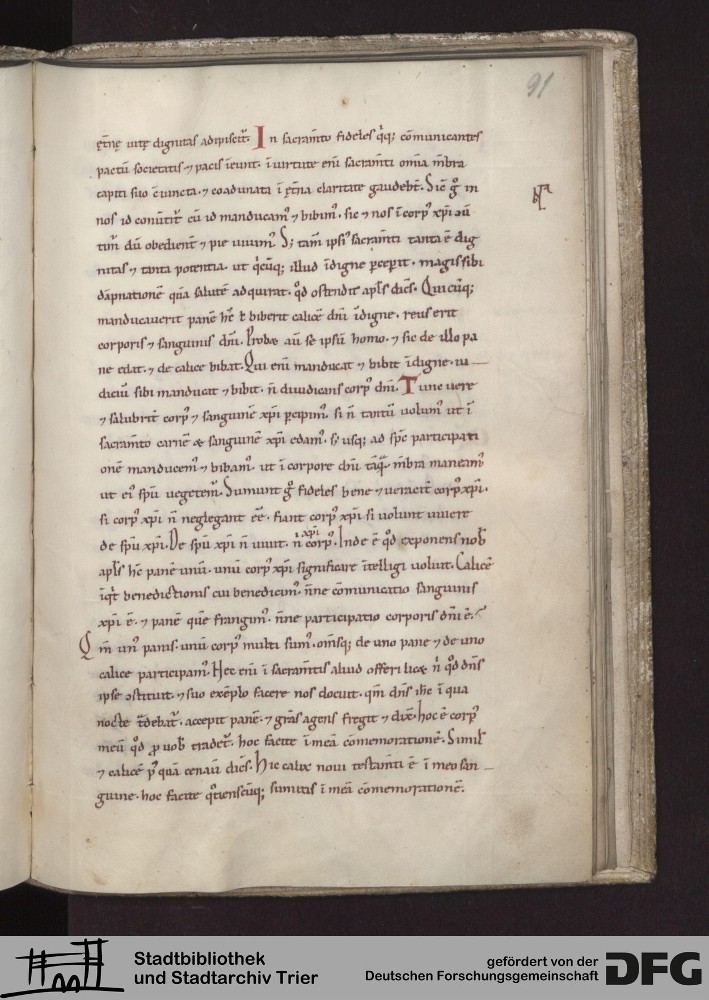 91
ęt̄nę uitę dignitas adipiscit̄. In sacram̄to fideles q̇q; cōmunicantes
pactū societatis ⁊ pacis īeunt. ī uirtute eni sacram̄ti om̄ia m̄bra
capiti suo cuncta. ⁊ coadunata ī ęt̄na claritate gaudebt̄. Sic g̊ in
nos id conuertit̄ cū id manducam᷒ ⁊ bibim᷒. sic ⁊ nos ī corp᷒ xp̄i
tim̄ dū obedient̄ ⁊ pie uiuim᷒. S; tam̄ ipsi᷒ sacram̄ti tanta ē dig
nitas ⁊ tanta potentia. ut q̇cūq; illud īdigne p̄ceperit. magis sibi
dāpnationē quā salutē adquirat. q̊d ostendit apl̄s dicēs. Quicūq;
manducauerit panē hc̄ ł biberit calicē dn̄i īdigne. reus erit
corporis ⁊ sanguinis dn̄i. Probæ au᷑ se ipsū homo. ⁊ sic de illo pa
ne edat. ⁊ de calice bibat. Qui eni manducat ⁊ bibit īdigne. iu
diciū sibi manducat ⁊ bibit. n̄ diiudicans corp᷒ dn̄i. Tunc uere
⁊ salubrit̄ corp᷒ ⁊ sanguinē xp̄i p̄cipim᷒. si n̄ tantū uolum᷒ ut ī
sacram̄to carnē & sanguinē xp̄i edam᷒. s; usq; ad sp̄c participati
onē manducem᷒ ⁊ bibam᷒. ut ī corpore dn̄i tāq̄ m̄bra maneam᷒
ut ei᷒ sp̄u uegetem᷒. Sumunt g̊ fideles bene ⁊ ueracit̄ corp᷒ xp̄i.
si corp᷒ xp̄i n̄ neglegant ēē. fiant corp᷒ xp̄i si uolunt uiuere
de sp̄u xp̄i. De sp̄u xp̄i n̄ uiuit. n̄ xp̄i corp᷒. Inde ē q̊d exponens nob̄
apl̄s hc̄ panē unū. unū corp᷒ xp̄i significare ītelligi uoluit. Calicē
iq̇t benedictionis cui benedicim᷒. n̄ne cōmunicatio sanguinis
xp̄i ē. ⁊ panē quē frangim᷒. n̄ne participatio corporis dn̄i ē?
Qm̄ un᷒ panis. unū corp᷒ multi sum᷒. om̄sq; de uno pane ⁊ de uno
calice participam᷒. Hec eni ī sacram̄tis aliud offeri licæ n̄ q̊d dn̄s
ipse ↄstituit. ⁊ suo exēplo facere nos docuit. qm̄ dn̄s ih̄c ī qua
nocte t̄debat̄. accepit panē. ⁊ grās agens fregit ⁊ dix̄. hoc ē corp᷒
meū q̊d ꝓ uob̄ tradet̄. hoc facite ī meā cōmemorationē. Simil̄
⁊ calicē p᷒quā cenauī dicēs. Hic calix noui testam̄ti ē ī meo san
guine. hoc facite q̊tienscūq; sumitis ī meā cōmemorationē.
Stadtbibliothek
und Stadtarchiv Trier
gefördert von der
Deutschen Forschungsgemeinschaft
DFG